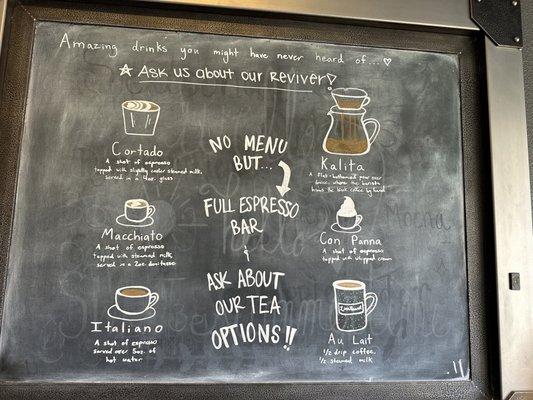 Amazing drinks you might have never heard of...
★ Ask us about our Reviver!
Cortado
A shot of espresso
topped with slightly cooler steamed milk,
served in a 4oz. glass
Macchiato
A shot of espresso
topped with steamed milk,
served in a 2oz. demitasse
Italiano
A shot of espresso
served over 5oz. of
hot water
NO MENU
BUT...
FULL ESPRESSO
BAR
&
ASK ABOUT
OUR TEA
OPTIONS!!
Kalita
A flat-bottomed pour over
device, where the barista
brews the coffee by hand
Con Panna
A shot of espresso
topped with whipped cream
Au Lait
1/2 drip coffee,
1/2 steamed milk